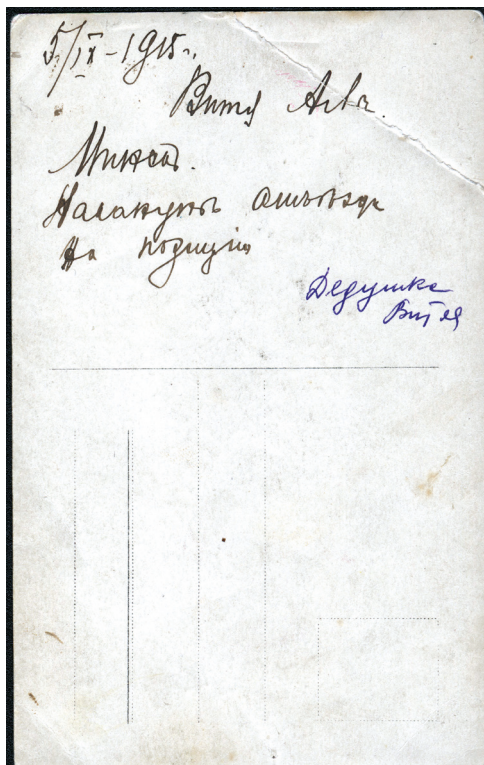 5/IX-1915 г.
Витя
Минскъ.
Наканунѣ отъѣзда
на позицію
Дедушка
Витя